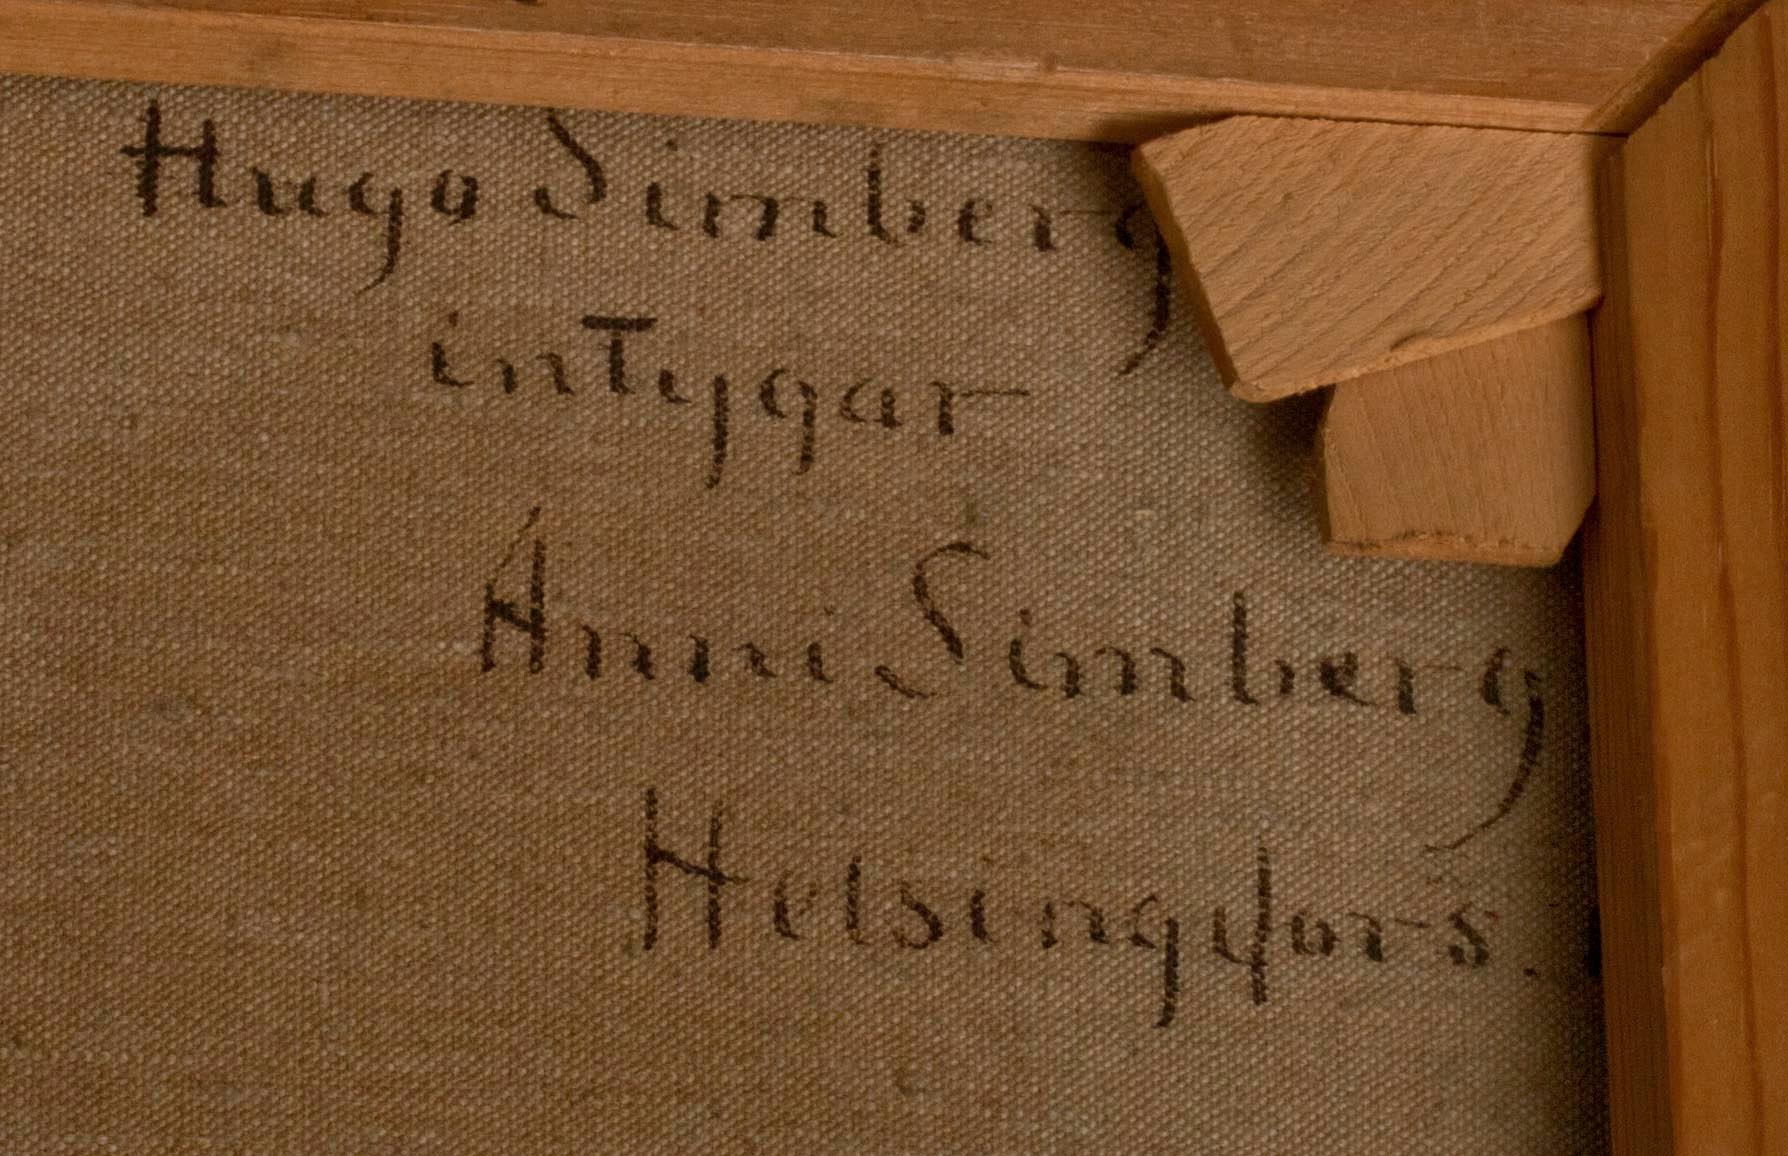 Hugo Simberg
intygar
Anni Simberg
Helsingfors.